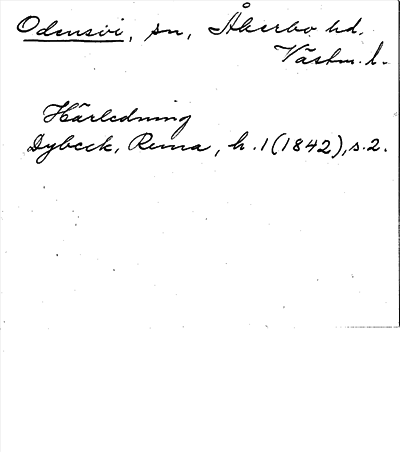 Odensvi, sn, Åkerbo hd.
Västm. l.
Härledning
Dybeck, Runa, h. 1 (1842), s. 2.